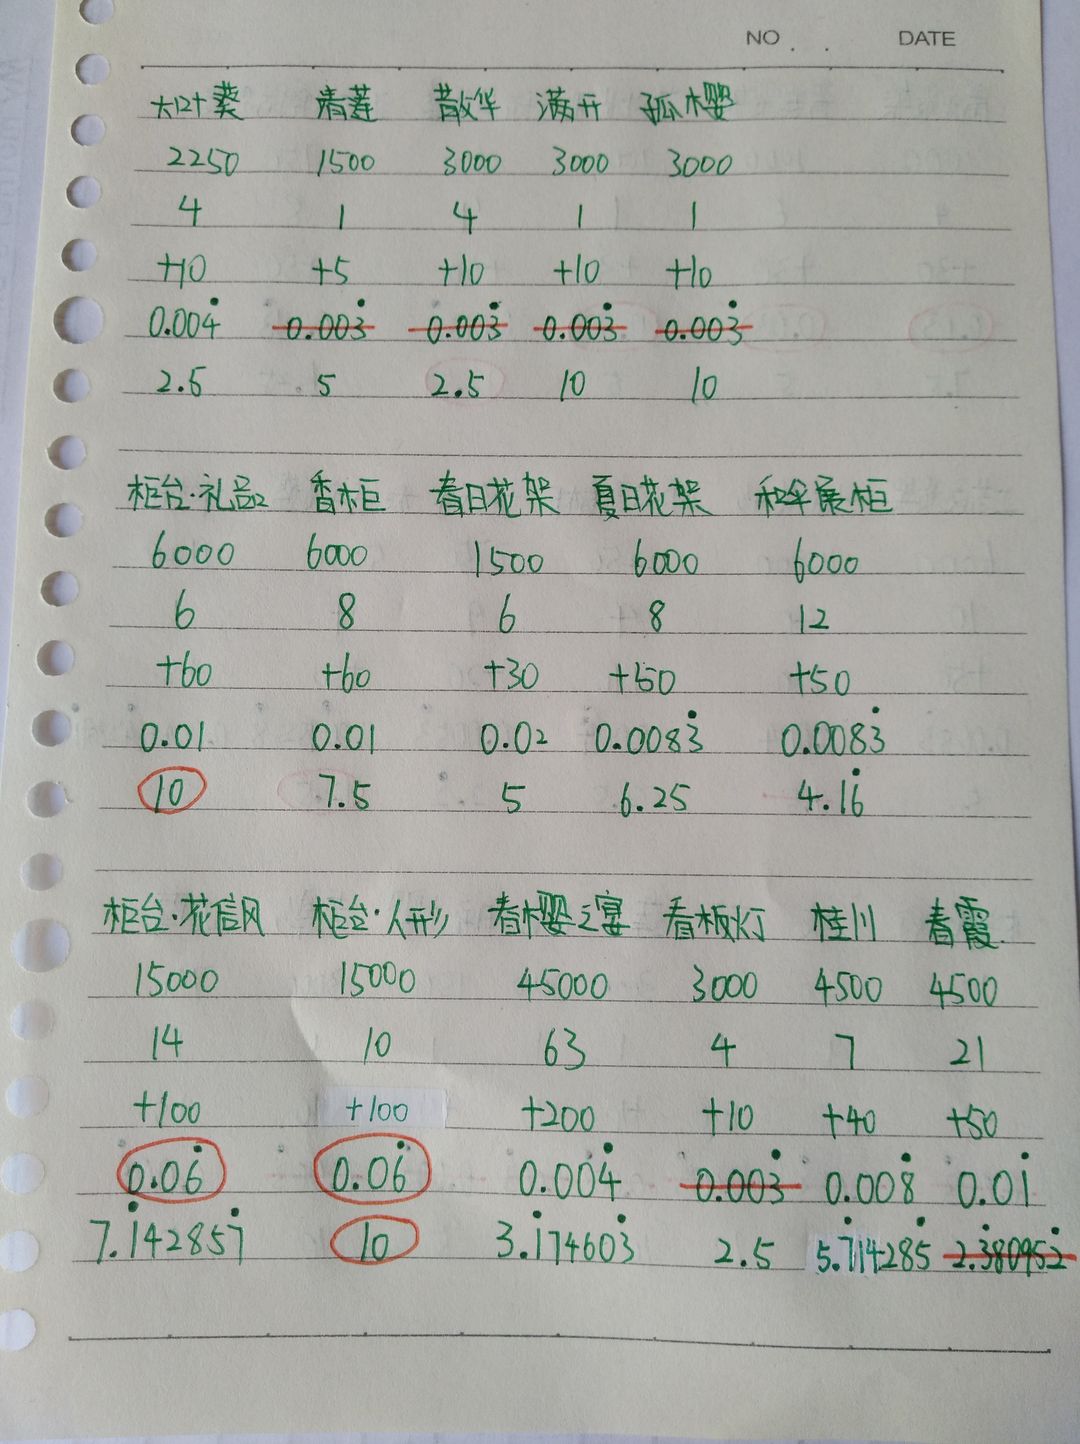 NO . . DATE
大叶葵 青莲 散华 满开 孤樱
2250 1500 3000 3000 3000
4 1 4 1 1
+10 +5 +10 +10 +10
0.004̇ 0.003̇ 0.003̇ 0.003̇ 0.003̇
2.5 5 2.5 10 10
柜台·礼品 香柜 春日花架 夏日花架 和伞展柜
6000 6000 1500 6000 6000
6 8 6 8 12
+60 +60 +30 +50 +50
0.01 0.01 0.02 0.0083̇ 0.0083̇
10 7.5 5 6.25 4.16̇
柜台·花信风 柜台·人形 春樱之宴 看板灯 桂川 春霞
15000 15000 45000 3000 4500 4500
14 10 63 4 7 21
+100 +100 +200 +10 +40 +50
0.06̇ 0.06̇ 0.004̇ 0.003̇ 0.008̇ 0.01̇
7.1̇42857̇ 10 3.1̇74603̇ 2.5 5.7̇14285̇ 2.3̇80952̇